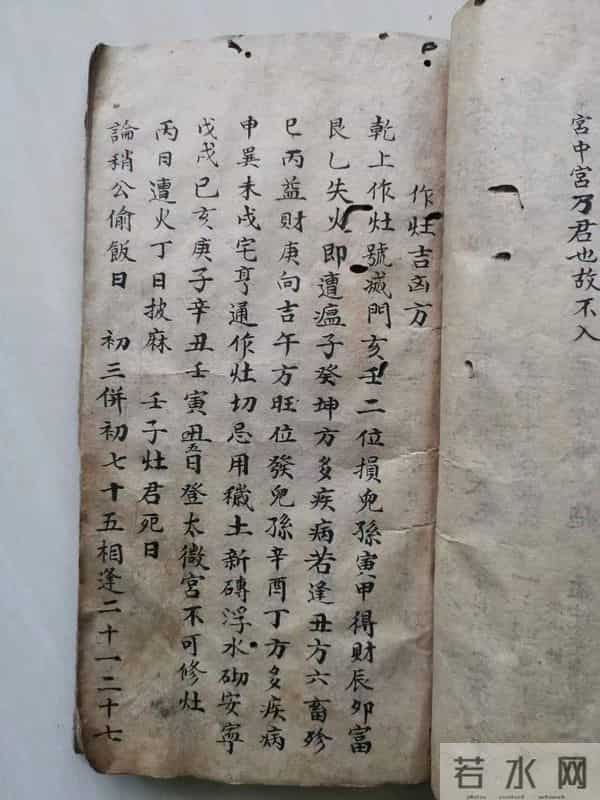 宮中宮万君也故不入
作灶吉凶方
乾上作灶號滅門亥壬二位損兒孫寅甲得財辰卯富
艮乙失火即遭瘟子癸坤方多疾病若逢丑方六畜殄
巳丙益財庚向吉午方旺位發兒孫辛酉丁方多疾病
申巽未戌宅亨通作灶切忌用穢土新磚浮水砌安寧
戊戌己亥庚子辛丑壬寅丑五日登太微宮不可修灶
丙日遭火丁日披麻 壬子灶君死日
論稍公偷飯日 初三併初七十五相逢二十一二十七
若水网